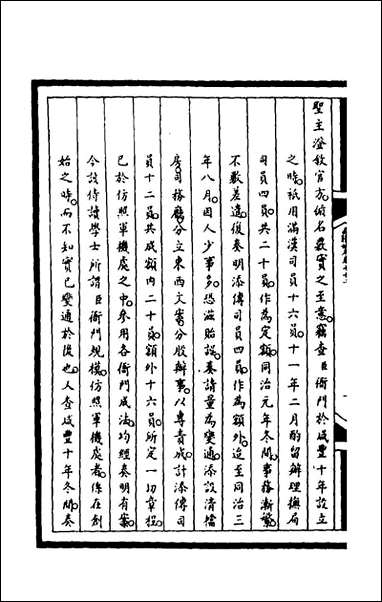 聖主澄敘官方循名覈實之至意竊查臣衙門於咸豐十年設立
之時祇用滿漢司員十六員十一年二月酌留辦理撫局
司員四員共二十員作為定額同治元年冬間事務漸繁
不敷差遣復奏明添傳司員四員作為額外迄至同治三
年八月因人少事多恐滋貽誤奏請量為變通添設清檔
房司務廳分立東西文案分股辦事以專責成計添傳司
員十二員共成額內二十員額外十六員所定一切章程
已於仿照軍機處之中參用各衙門成法均經奏明有案
今該侍讀學士所謂臣衙門規模仿照軍機處者係在創
始之時而不知實已變通於後也又查咸豐十年冬間奏